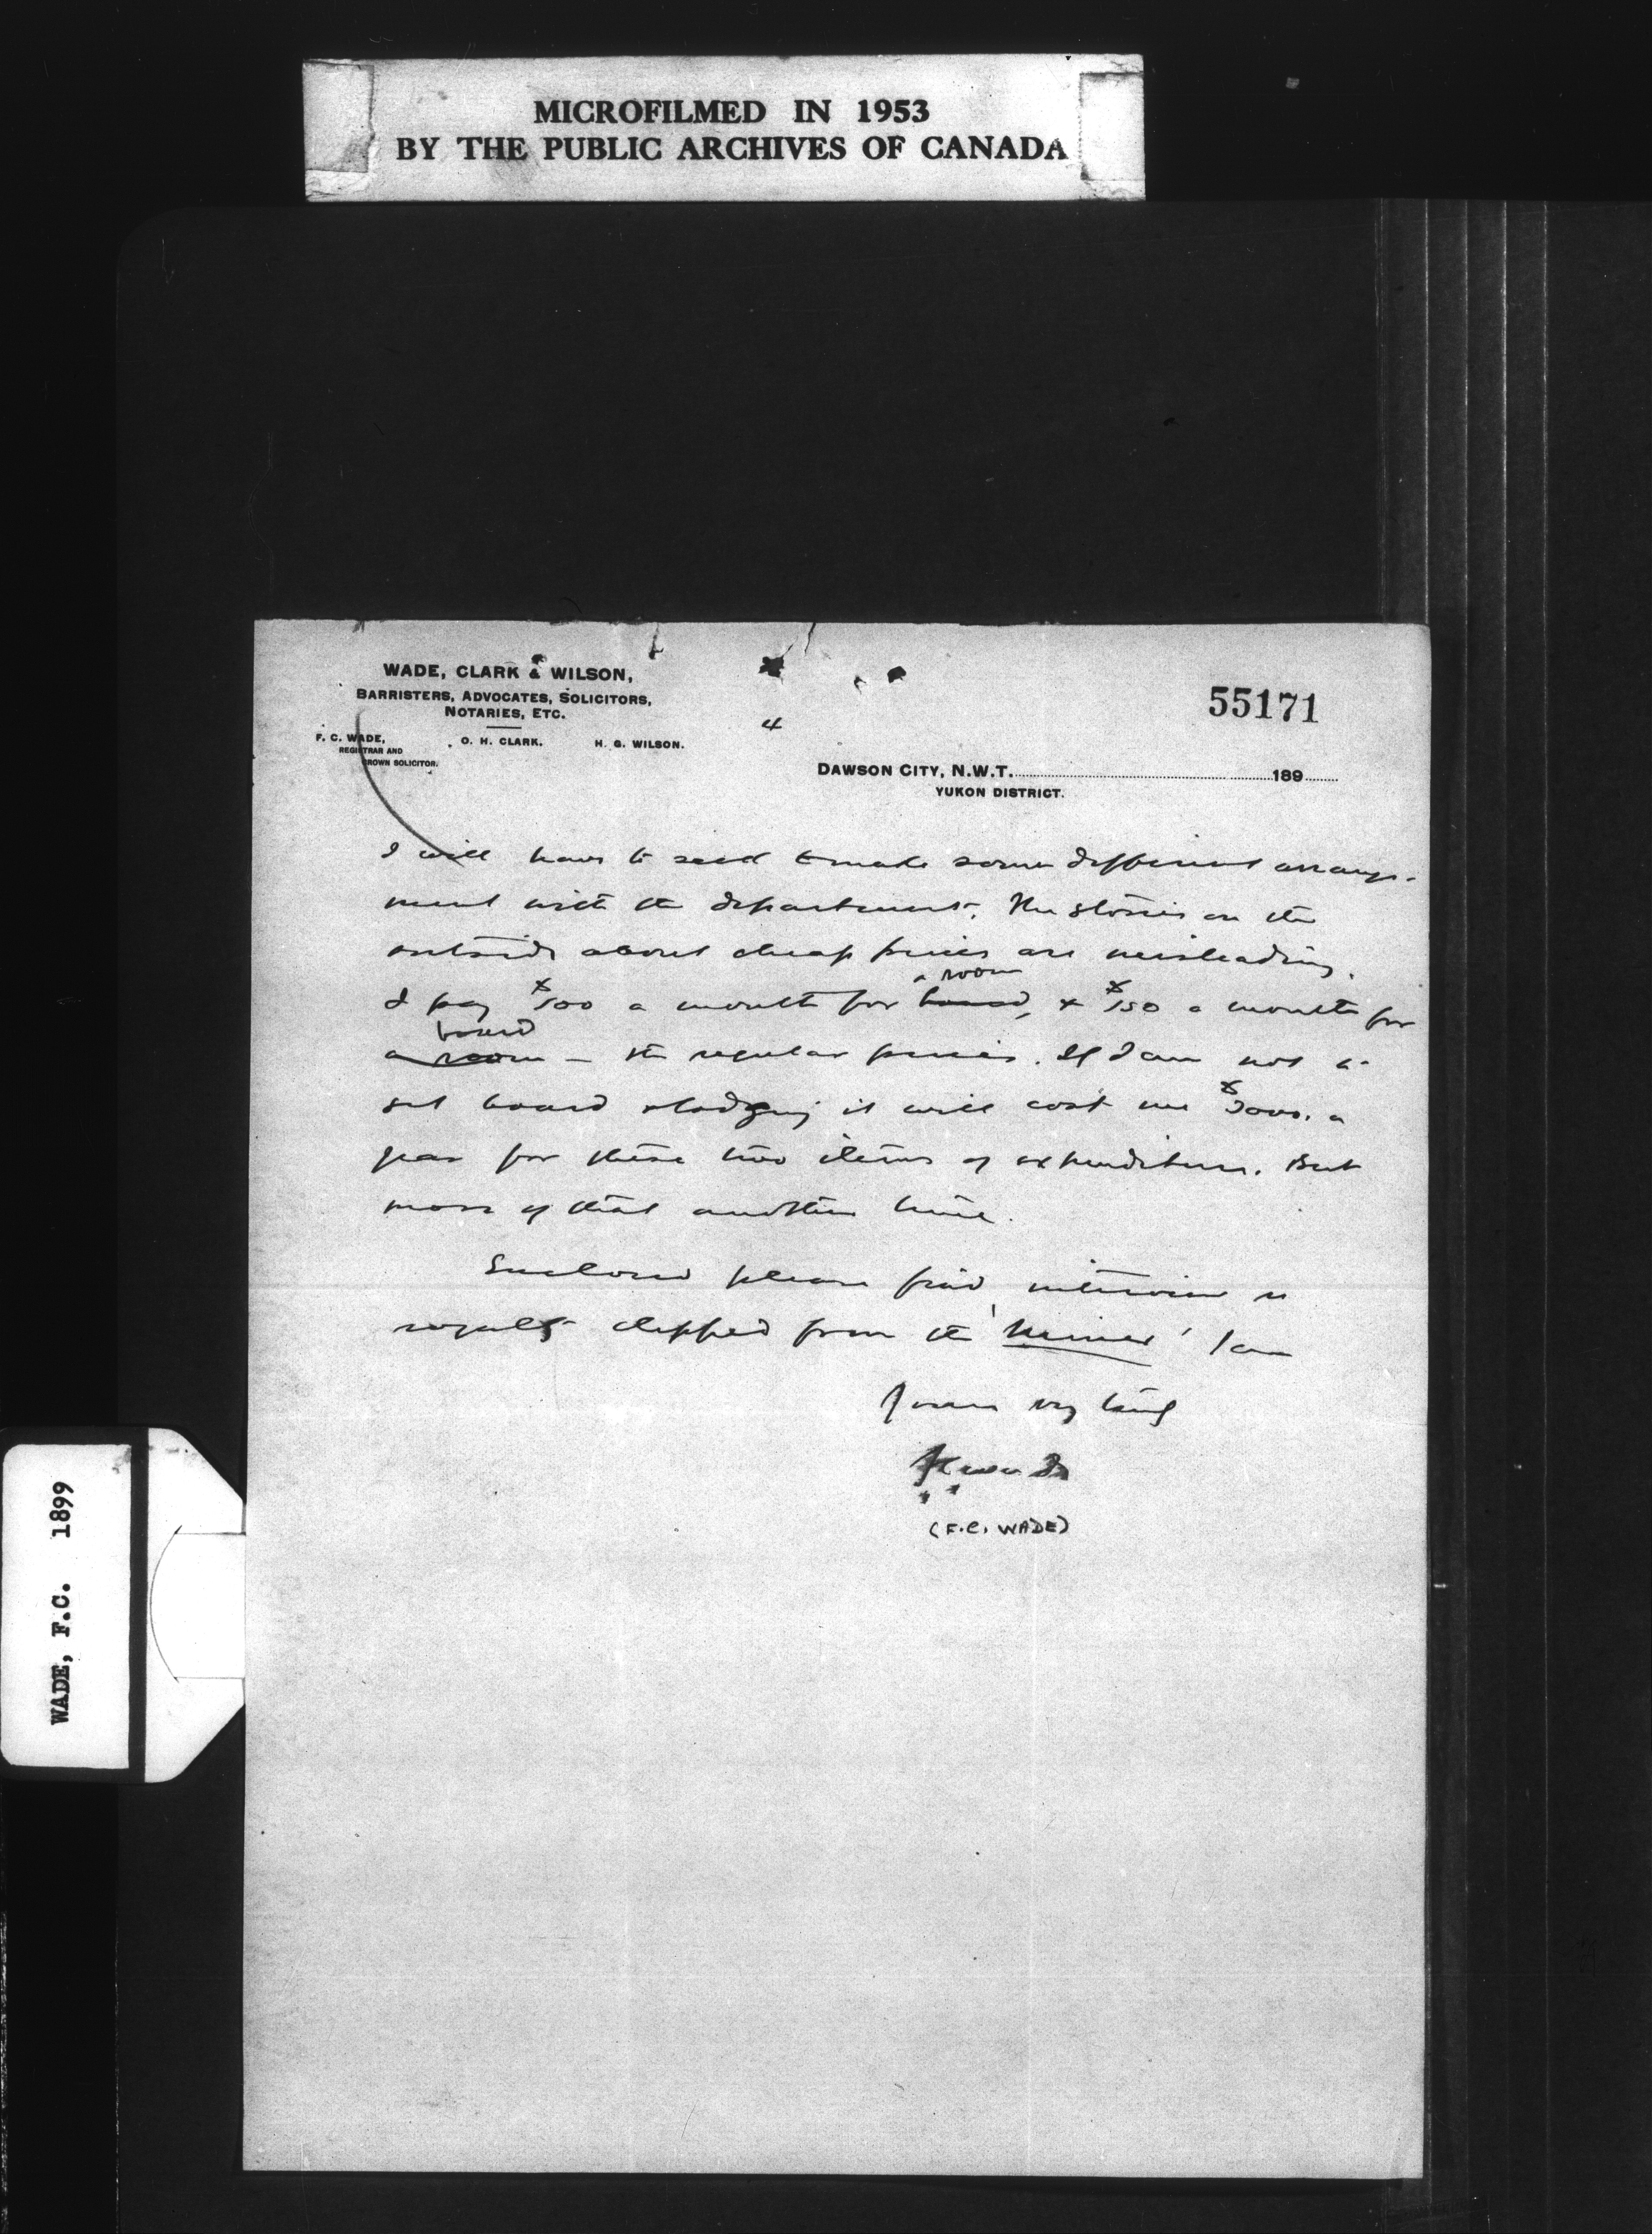 MICROFILMED IN 1953
BY THE PUBLIC ARCHIVES OF CANADA
WADE, CLARK & WILSON,
BARRISTERS, ADVOCATES, SOLICITORS,
NOTARIES, ETC.
F. C. WADE, O. H. CLARK. H. G. WILSON.
REGISTRAR AND
CROWN SOLICITOR.
4
55171
DAWSON CITY, N.W.T. 189
YUKON DISTRICT.
I will have to make some different arrange-
ment with the department. The stories on the
outside about cheap prices are misleading.
a room
I pay $100 a month for board, & $150 a month for
board
a room — the regular prices. If I am not to
get board & lodging it will cost me $3000. a
year for these two items of expenditure. But
more of that another time.
Enclosed please find interview re
royalty clipped from the 'Miner' I am
Yours very truly
FCWade
(F.C. WADE)
WADE, F.C. 1899